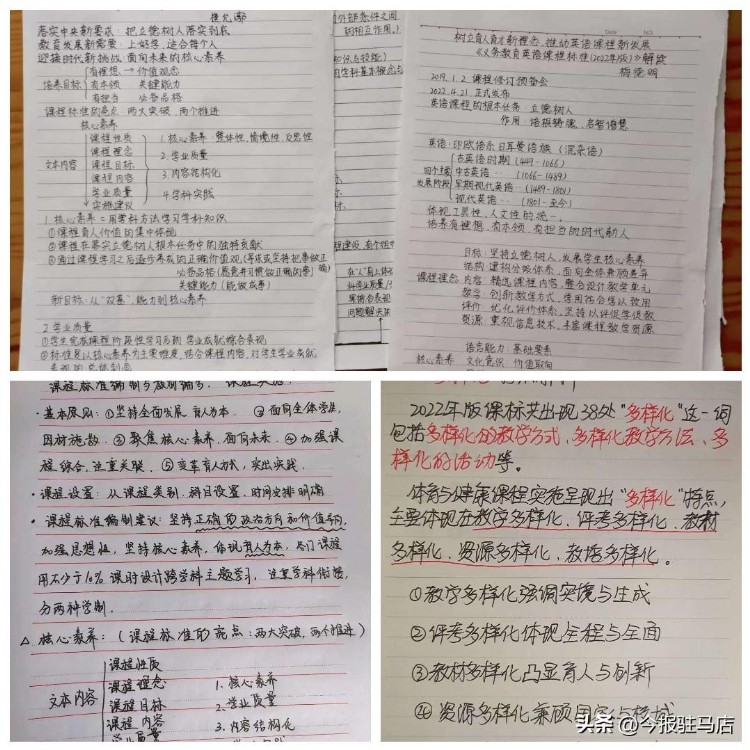 崔允漷
落实中央新要求：把立德树人落实到底
教育发展新需要：上好学，适合每个人
迎接时代新挑战 面向未来的核心素养
有理想 → 价值观念
培养目标 有本领 关键能力
有担当 必备品格
课程标准的亮点 两大突破，两个推进
核心素养
课程性质 1.核心素养 整体性，情境性，反思性
课程理念
文本内容 课程目标 2.学业质量
课程内容 3.内容结构化
学业质量 4.学科实践
实施建议
1.核心素养=用学科方法学习学科知识
①课程育人价值的集中体现
②课程在落实立德树人根本任务中的独特贡献
③通过课程学习之后逐步养成的正确价值观
必备品格
关键能力（能做成事）
新目标：从“双基”，能力到核心素养
2.学业质量
①学生完成课程阶段性学习后的学业成就综合表现
②标准是以核心素养为主要维度，结合课程内容，对学生学业成就
表现的总体刻画
外部条件之间
的相互作用，
树立育人育才新理念，推动英语课程新发展
《义务教育英语课程标准(2022年版)》解读
梅德明
2019.1.2 课程修订预备会
2022.4.21 正式发布
英语课程的根本任务：立德树人
作用：培根铸魂，启智增慧
英语：印欧语系日耳曼语族（混杂语）
古英语时期 (449-1066)
四个主要 中古英语·· (1066-1489)
发展阶段 早期现代英语·· (1489-1801)
现代英语·· (1801-至今)
体现工具性，人文性的统一。
培养有理想，有本领，有担当的时代新人
目标：坚持立德树人，发展学生核心素养
结构：建构分级体系，面向全体兼顾差异
课程理念 内容：精选课程内容，整合设计教学单元
教学：创新教学方式，学用结合学以致用
评价：优化评价体系，坚持以评促学促教
资源：重视信息技术，丰富课程教学资源
语言能力：基础要素
核心素养 文化意识：价值取向
·基本原则：①坚持全面发展，育人为本。②面向全体学生，
因材施教。③聚焦核心素养，面向未来。④加强课
程综合，注重关联。⑤变革育人方式，突出实践。
·课程设置：从课程类别、科目设置、时间安排明确
·课程标准编制建议：坚持正确的政治方向和价值导向，
加强思想性，坚持核心素养，体现育人为本，各门课程
用不少于10%课时设计跨学科主题学习，注重学科衔接，
分两种学制。
△ 核心素养：（课程标准的亮点：两大突破，两个推进）
课程性质
课程理念 1.核心素养
文本内容 课程目标 2.学业质量
课程内容 3.内容结构化
学业质量
2022年版课标共出现38处“多样化”这一词
包括多样化的教学方式、多样化教学方法、多
样化的活动等。
体育与健康课程实施呈现出“多样化”特点，
主要体现在教学多样化、评考多样化、教材
多样化、资源多样化、教措多样化。
①教学多样化强调实境与生成
②评考多样化体现全程与全面
③教材多样化凸显育人与创新
④资源多样化兼顾国家与域域
头条 @今报驻马店